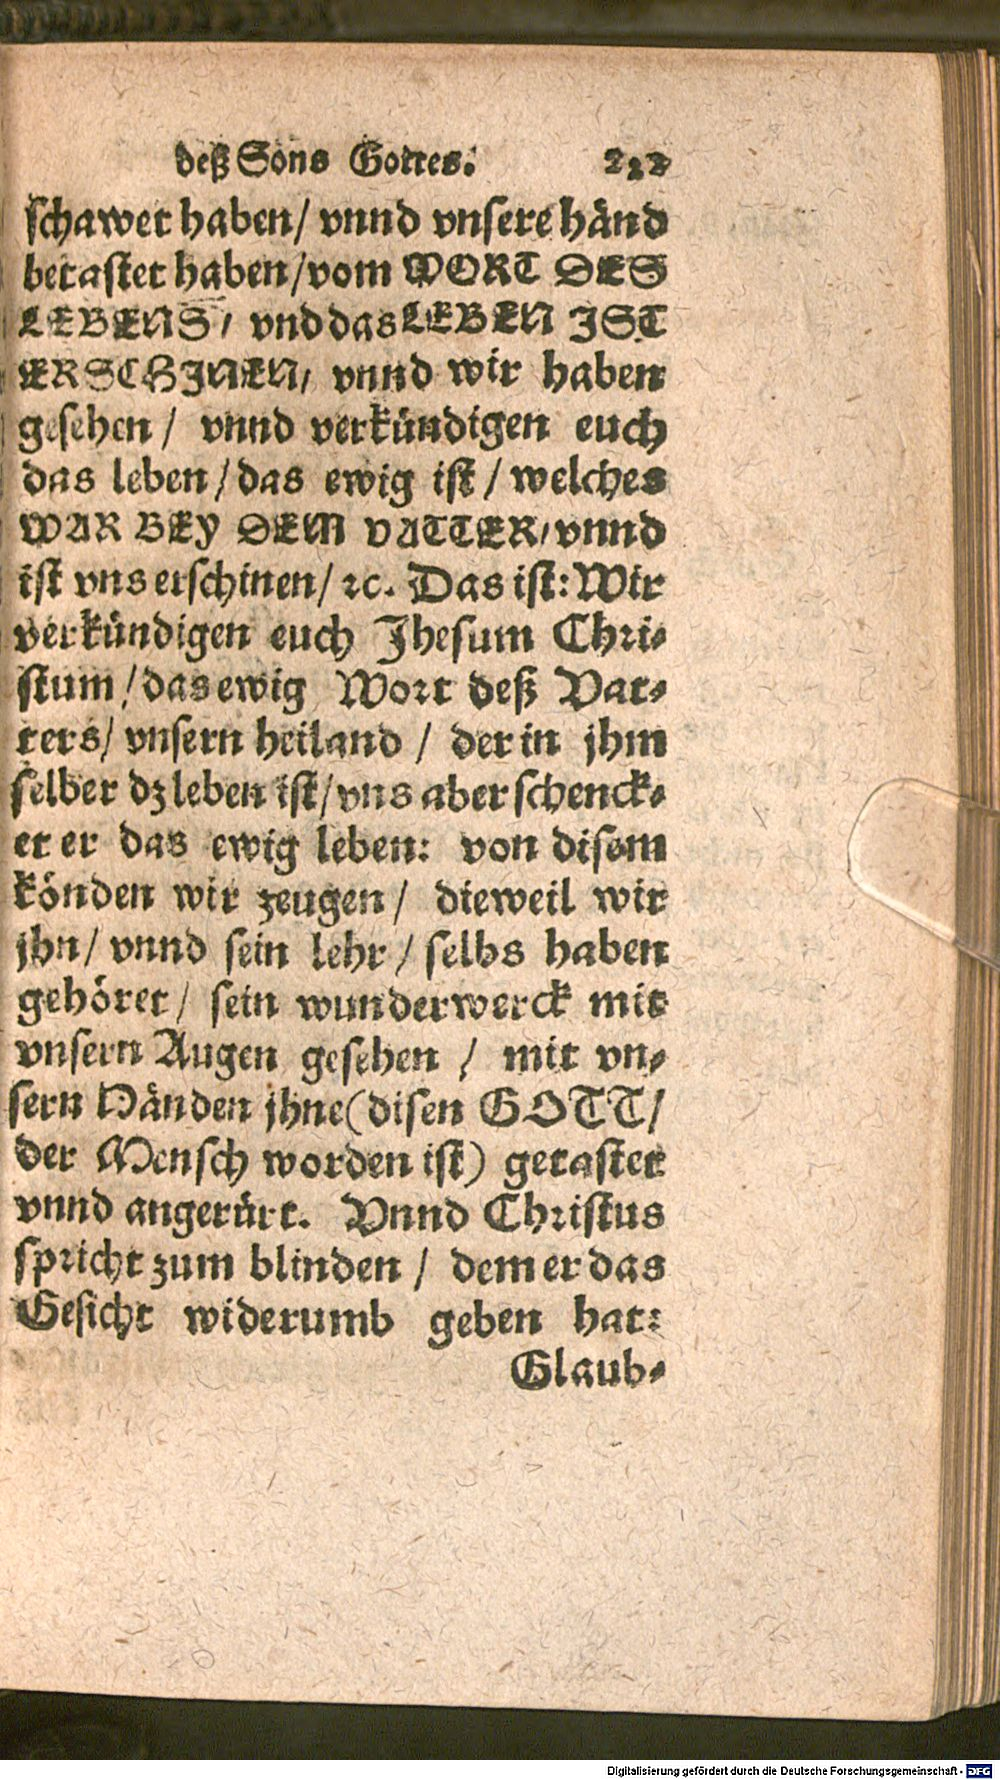 deß Sons Gottes. 232
schawet haben/ vnnd vnsere händ
betastet haben/vom WORT DES
LEBENS/ vnd das LEBEN IST
ERSCHINEN/ vnnd wir haben
gesehen/ vnnd verkündigen euch
das leben/das ewig ist/welches
WAR BEY DEM VATTER/vnnd
ist vns erschinen/ ꝛc. Das ist: Wir
verkündigen euch Jhesum Chri-
stum/das ewig Wort deß Vat-
ters/ vnsern heiland/ der in jhm
selber dz leben ist/vns aber schenck-
et er das ewig leben: von disem
könden wir zeugen/ dieweil wir
jhn/ vnnd sein lehr/ selbs haben
gehöret/ sein wunderwerck mit
vnsern Augen gesehen/ mit vn-
sern Händen jhne (disen GOTT/
der Mensch worden ist) getastet
vnnd angerürt. Vnnd Christus
spricht zum blinden/ dem er das
Gesicht widerumb geben hat:
Glaub-
Digitalisierung gefördert durch die Deutsche Forschungsgemeinschaft - DFG